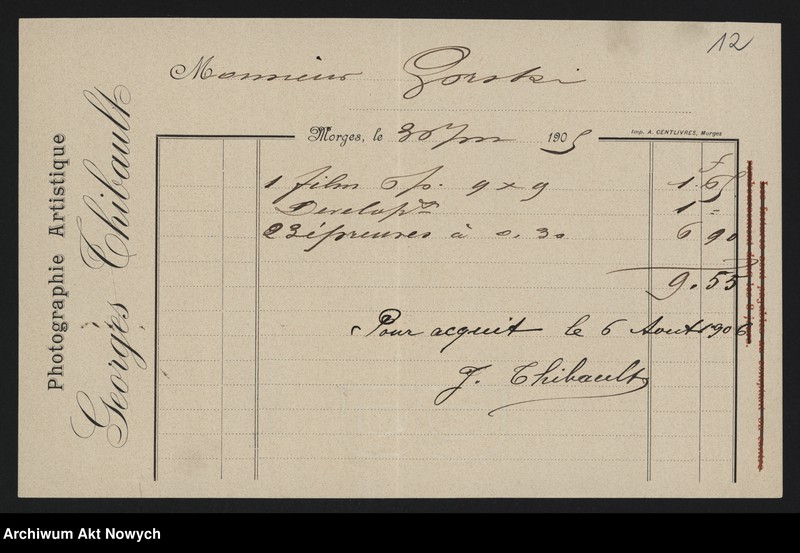 12
Photographie Artistique
Georges Thibault
Monsieur Gorski
Morges, le 30 1905
Imp. A. GENTLIVRES, Morges
f
1 film 6 p. 9 x 9 1.65
Develop 1 =
23 épreuves à 0.30 6 90
9.55
Pour acquit le 6 Aout 1906
J. Thibault
Archiwum Akt Nowych